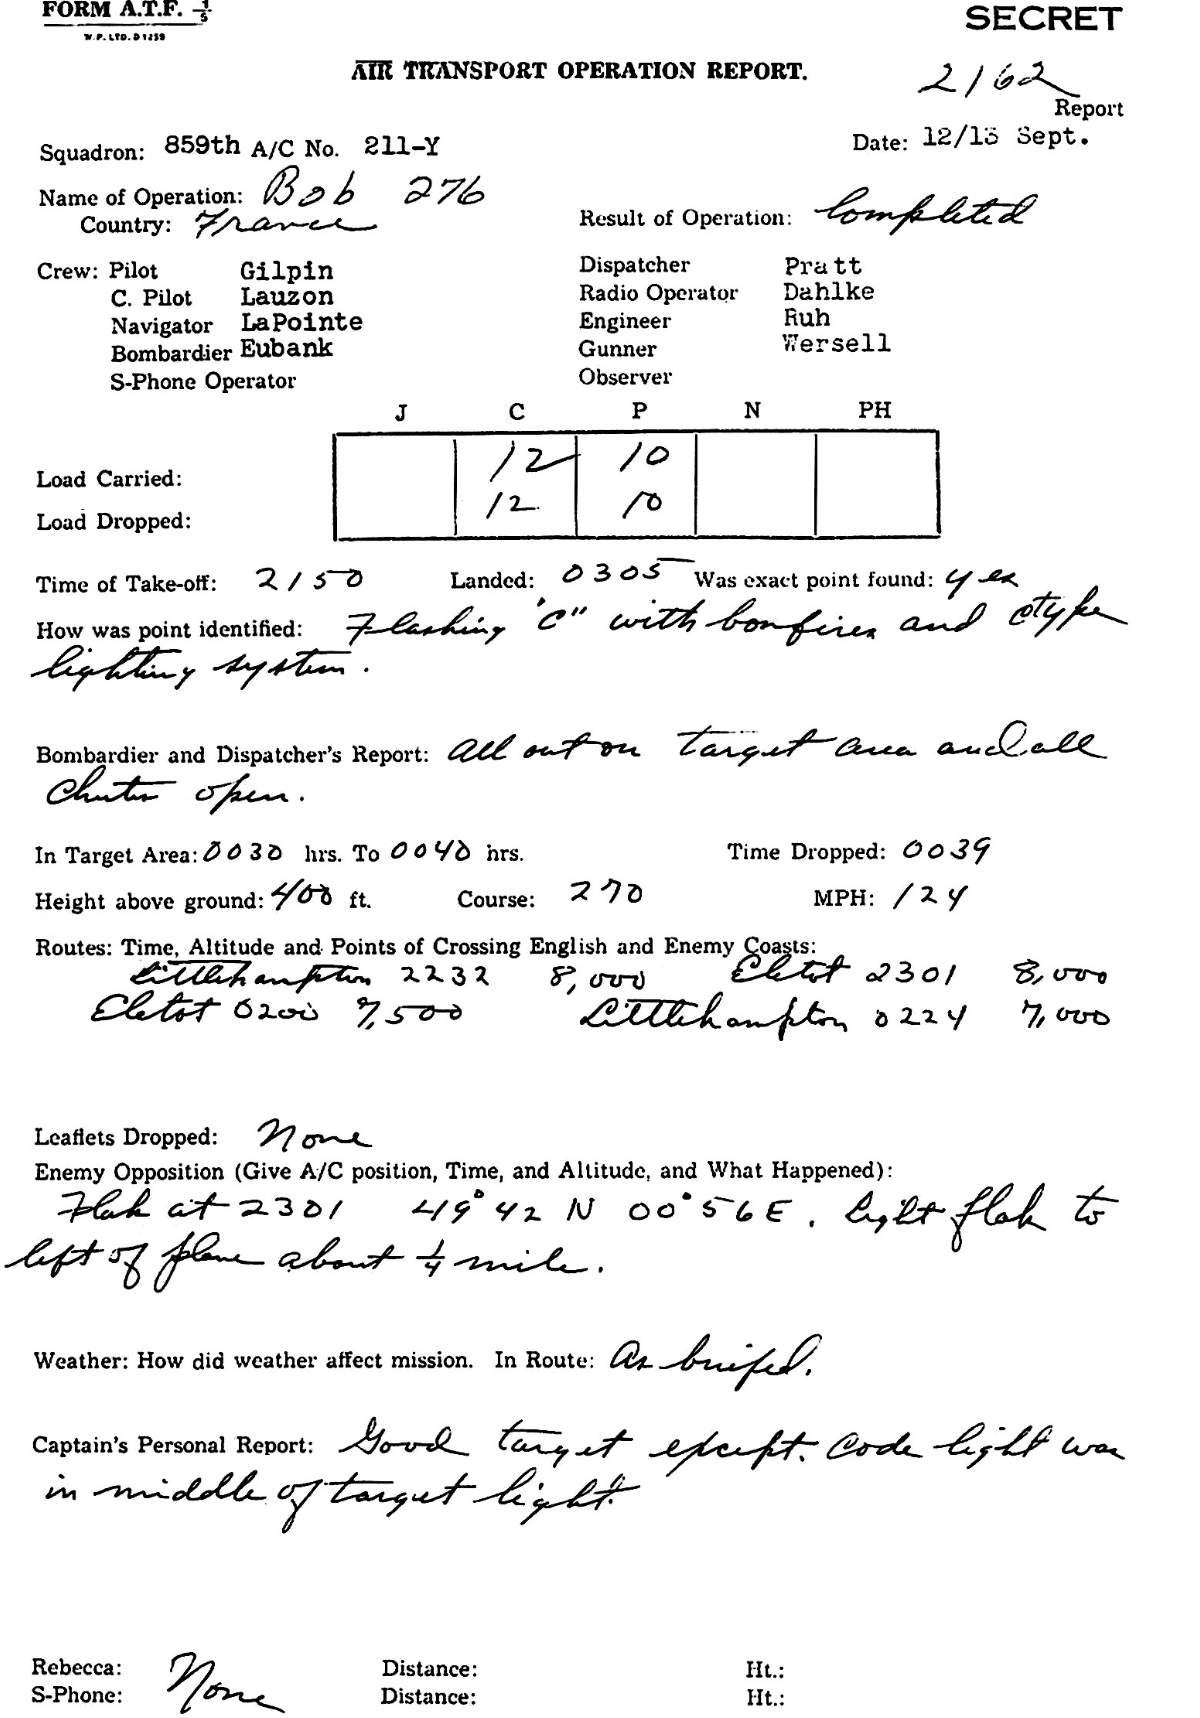 FORM A.T.F. 1/5
SECRET
W.P. LTD. D1259
AIR TRANSPORT OPERATION REPORT.
2162
Report
Squadron: 859th A/C No. 211-Y
Date: 12/13 Sept.
Name of Operation: Bob 276
Country: France
Result of Operation: Completed
Crew: Pilot Gilpin
Dispatcher Pratt
C. Pilot Lauzon
Radio Operator Dahlke
Navigator LaPointe
Engineer Ruh
Bombardier Eubank
Gunner Wersell
S-Phone Operator
Observer
J C P N PH
Load Carried: 12 10
Load Dropped: 12 10
Time of Take-off: 2150 Landed: 0305 Was exact point found: yes
How was point identified: Flashing "C" with bonfires and ctype
lighting system.
Bombardier and Dispatcher's Report: All out on target area and all
Chutes open.
In Target Area: 0030 hrs. To 0040 hrs. Time Dropped: 0039
Height above ground: 400 ft. Course: 270 MPH: 124
Routes: Time, Altitude and Points of Crossing English and Enemy Coasts:
Littlehampton 2232 8,000 Eletot 2301 8,000
Eletot 0200 7,500 Littlehampton 0224 7,000
Leaflets Dropped: None
Enemy Opposition (Give A/C position, Time, and Altitude, and What Happened):
Flak at 2301 49° 42 N 00° 56 E. light flak to
left of plane about 1/4 mile.
Weather: How did weather affect mission. In Route: As briefed.
Captain's Personal Report: Good target except. Code light was
in middle of target light.
Rebecca: None Distance: Ht.:
S-Phone: Distance: Ht.: